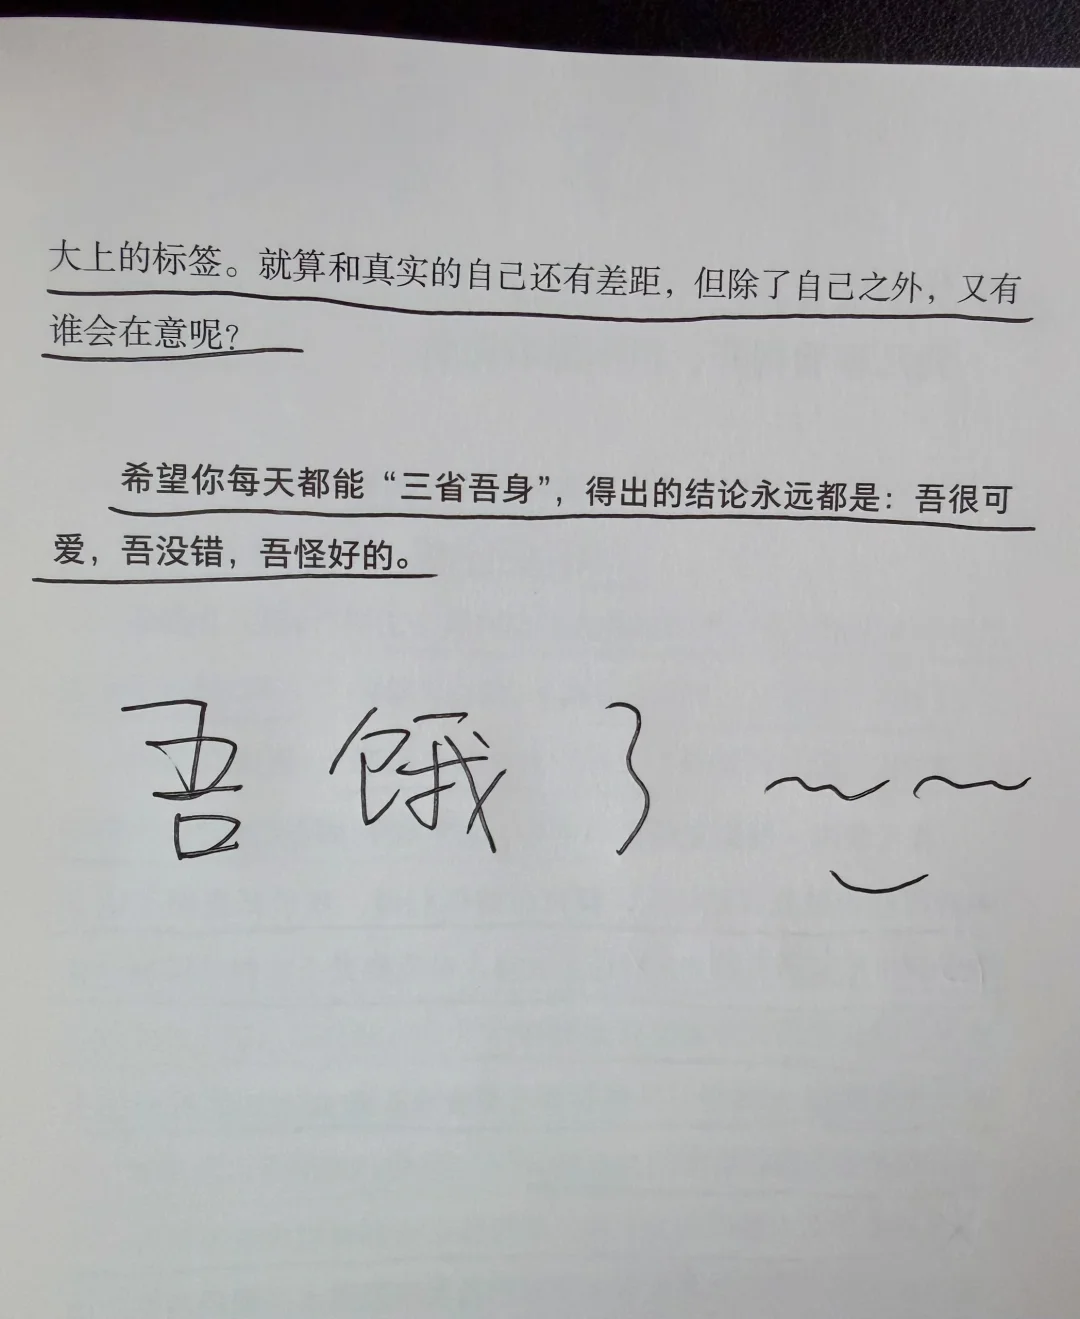 大上的标签。就算和真实的自己还有差距，但除了自己之外，又有
谁会在意呢？
希望你每天都能“三省吾身”，得出的结论永远都是：吾很可
爱，吾没错，吾怪好的。
吾饿了~~